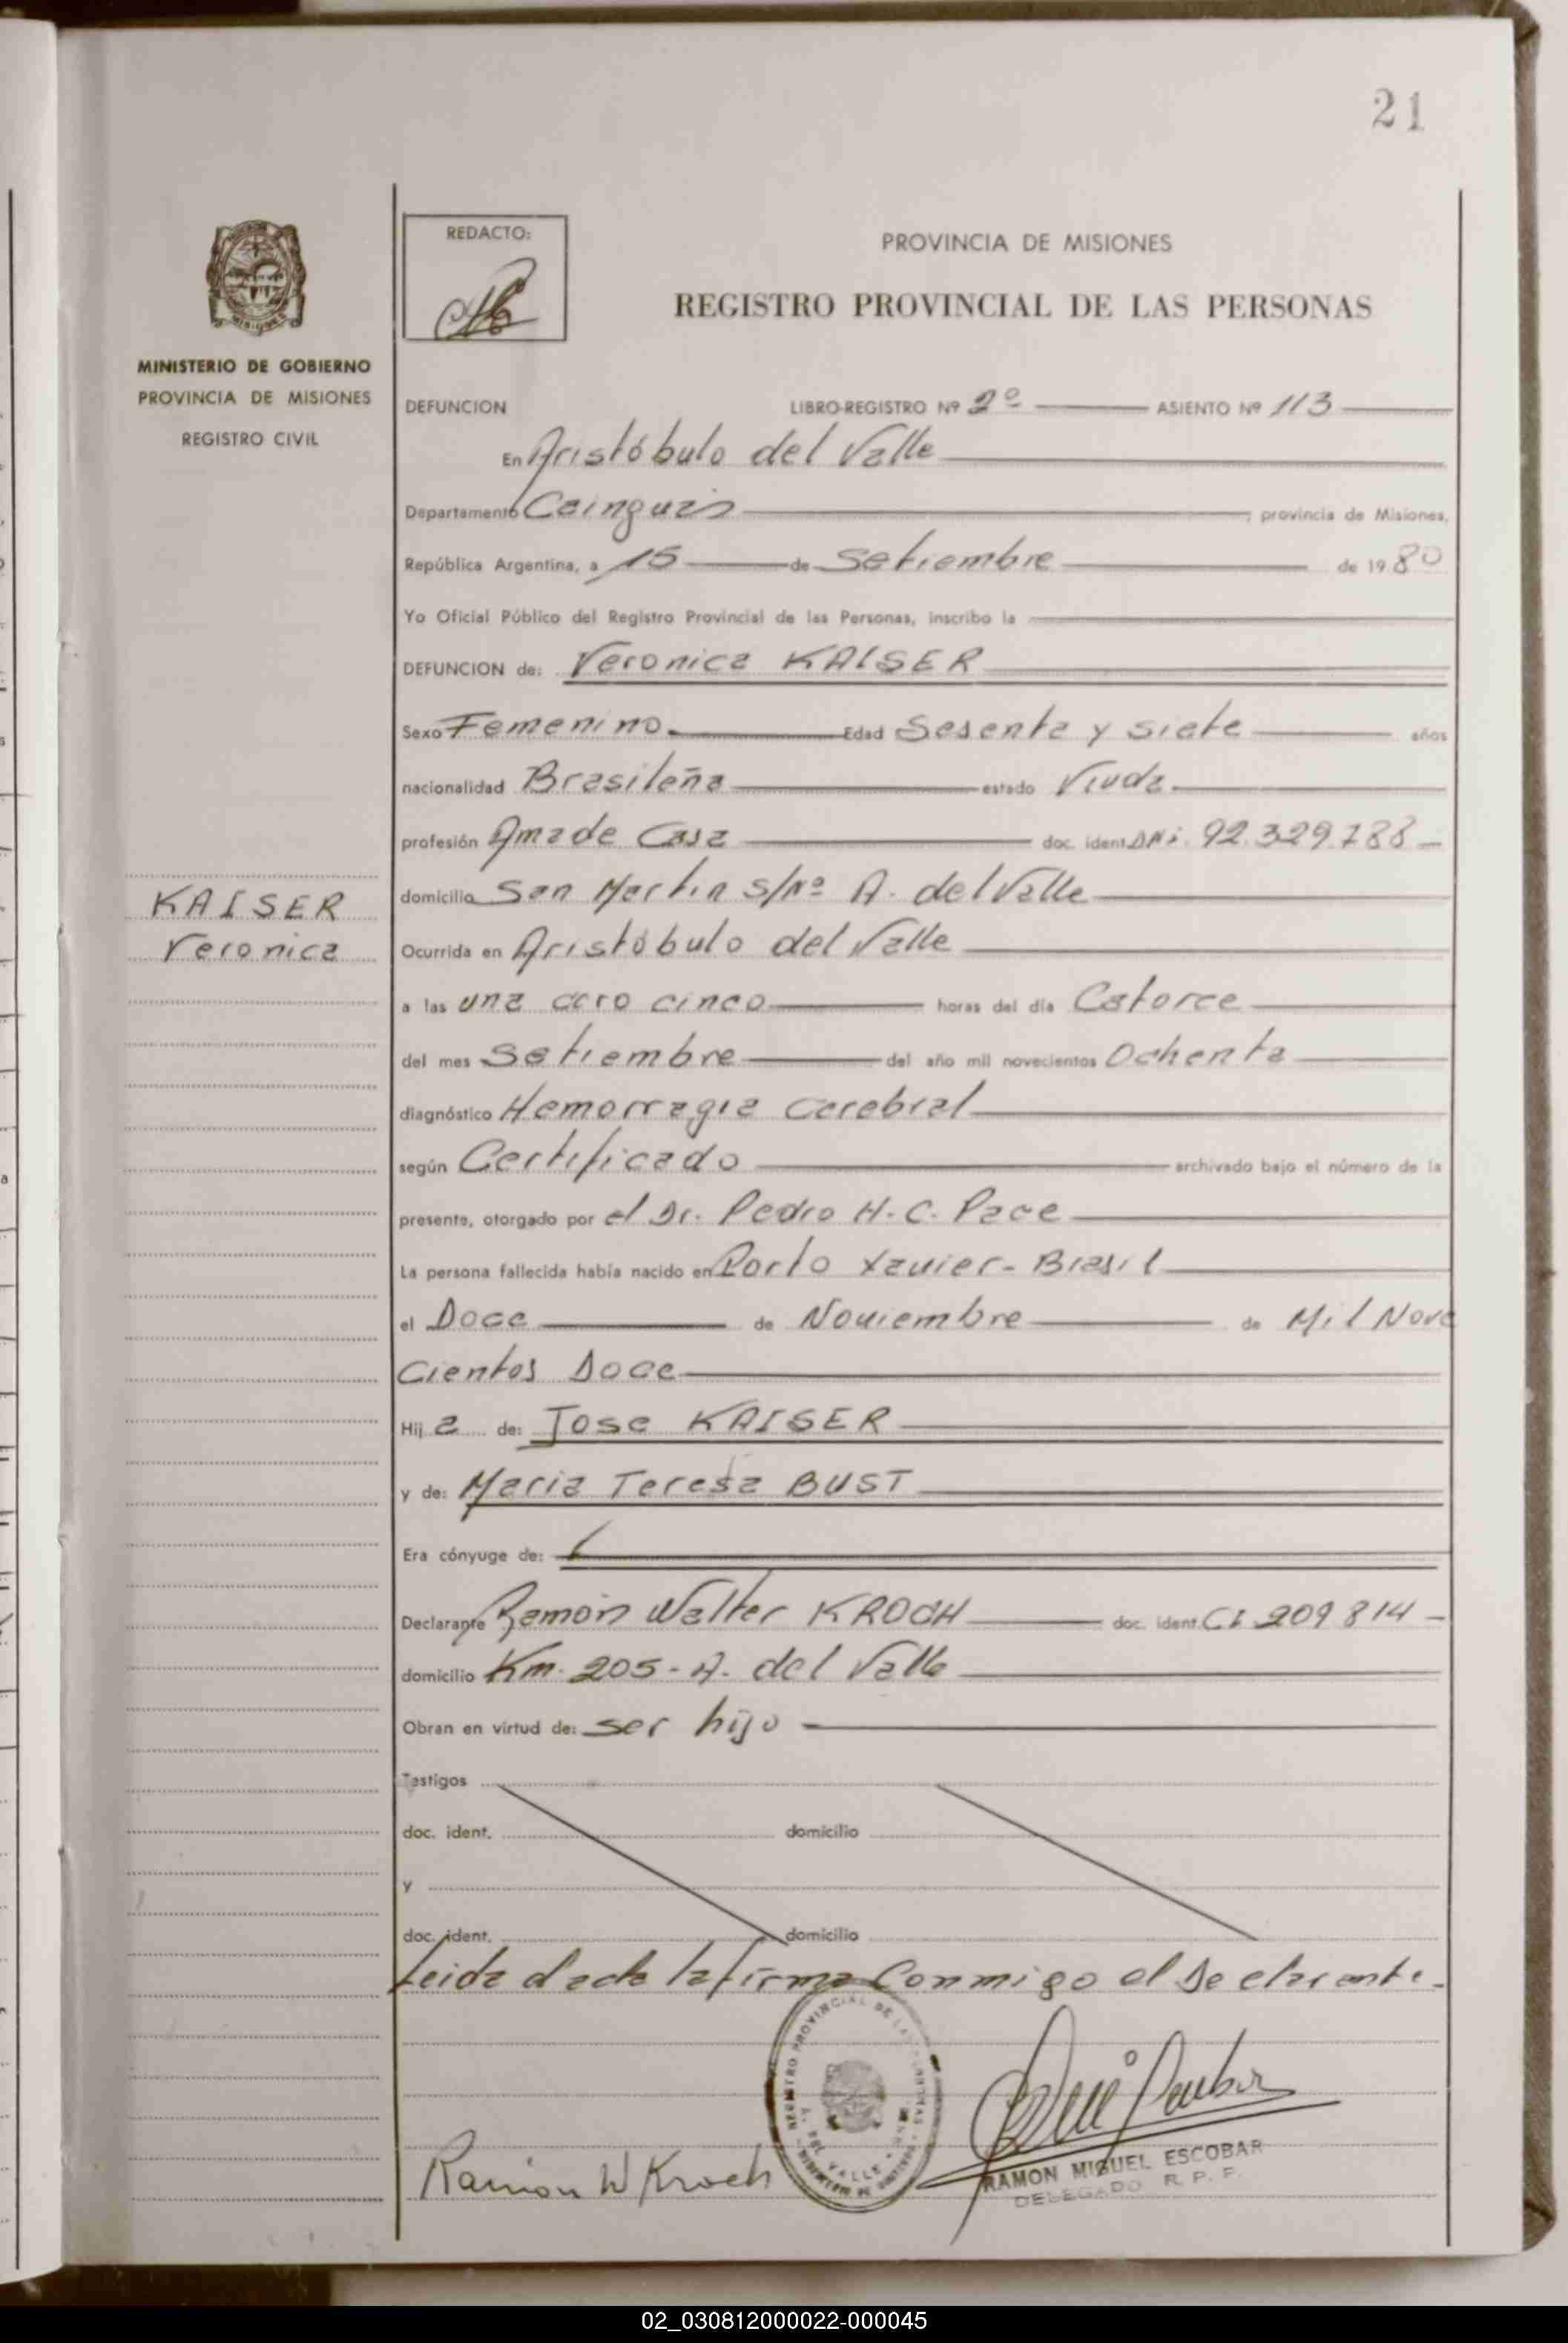 21
REDACTO:
PROVINCIA DE MISIONES
REGISTRO PROVINCIAL DE LAS PERSONAS
MISIONES
MINISTERIO DE GOBIERNO
PROVINCIA DE MISIONES
REGISTRO CIVIL
DEFUNCION LIBRO-REGISTRO Nº 2º ASIENTO Nº 113
En Aristóbulo del Valle
Departamento Cainguás, provincia de Misiones,
República Argentina, a 15 de Setiembre de 1980
Yo Oficial Público del Registro Provincial de las Personas, inscribo la
DEFUNCION de: Veronica KAISER
Sexo Femenino Edad Sesenta y siete años
nacionalidad Brasileña estado Viuda
profesión Ama de Casa doc. ident. DNi. 92.329.788
domicilio San Martin s/nº A. del Valle
KAISER
Veronica
Ocurrida en Aristóbulo del Valle
a las una cero cinco horas del día Catorce
del mes Setiembre del año mil novecientos Ochenta
diagnóstico Hemorragia Cerebral
según Certificado archivado bajo el número de la
presente, otorgado por el Dr. Pedro H. C. Pace
La persona fallecida había nacido en Porto Xavier - Brasil
el Doce de Noviembre de Mil Nove
cientos Doce
Hija de: Jose KAISER
y de: Maria Teresa BUST
Era cónyuge de:
Declarante Ramón Walter KROCH doc. ident. CI 209814
domicilio Km. 205 - A. del Valle
Obran en virtud de: ser hijo
Testigos
doc. ident. domicilio
y
doc. ident. domicilio
Leida el acta la firma Conmigo el Declarante.
REGISTRO PROVINCIAL DE LAS PERSONAS
A. DEL VALLE
Ramón W Kroch
RAMON MIGUEL ESCOBAR
DELEGADO R. P. P.
02_030812000022-000045